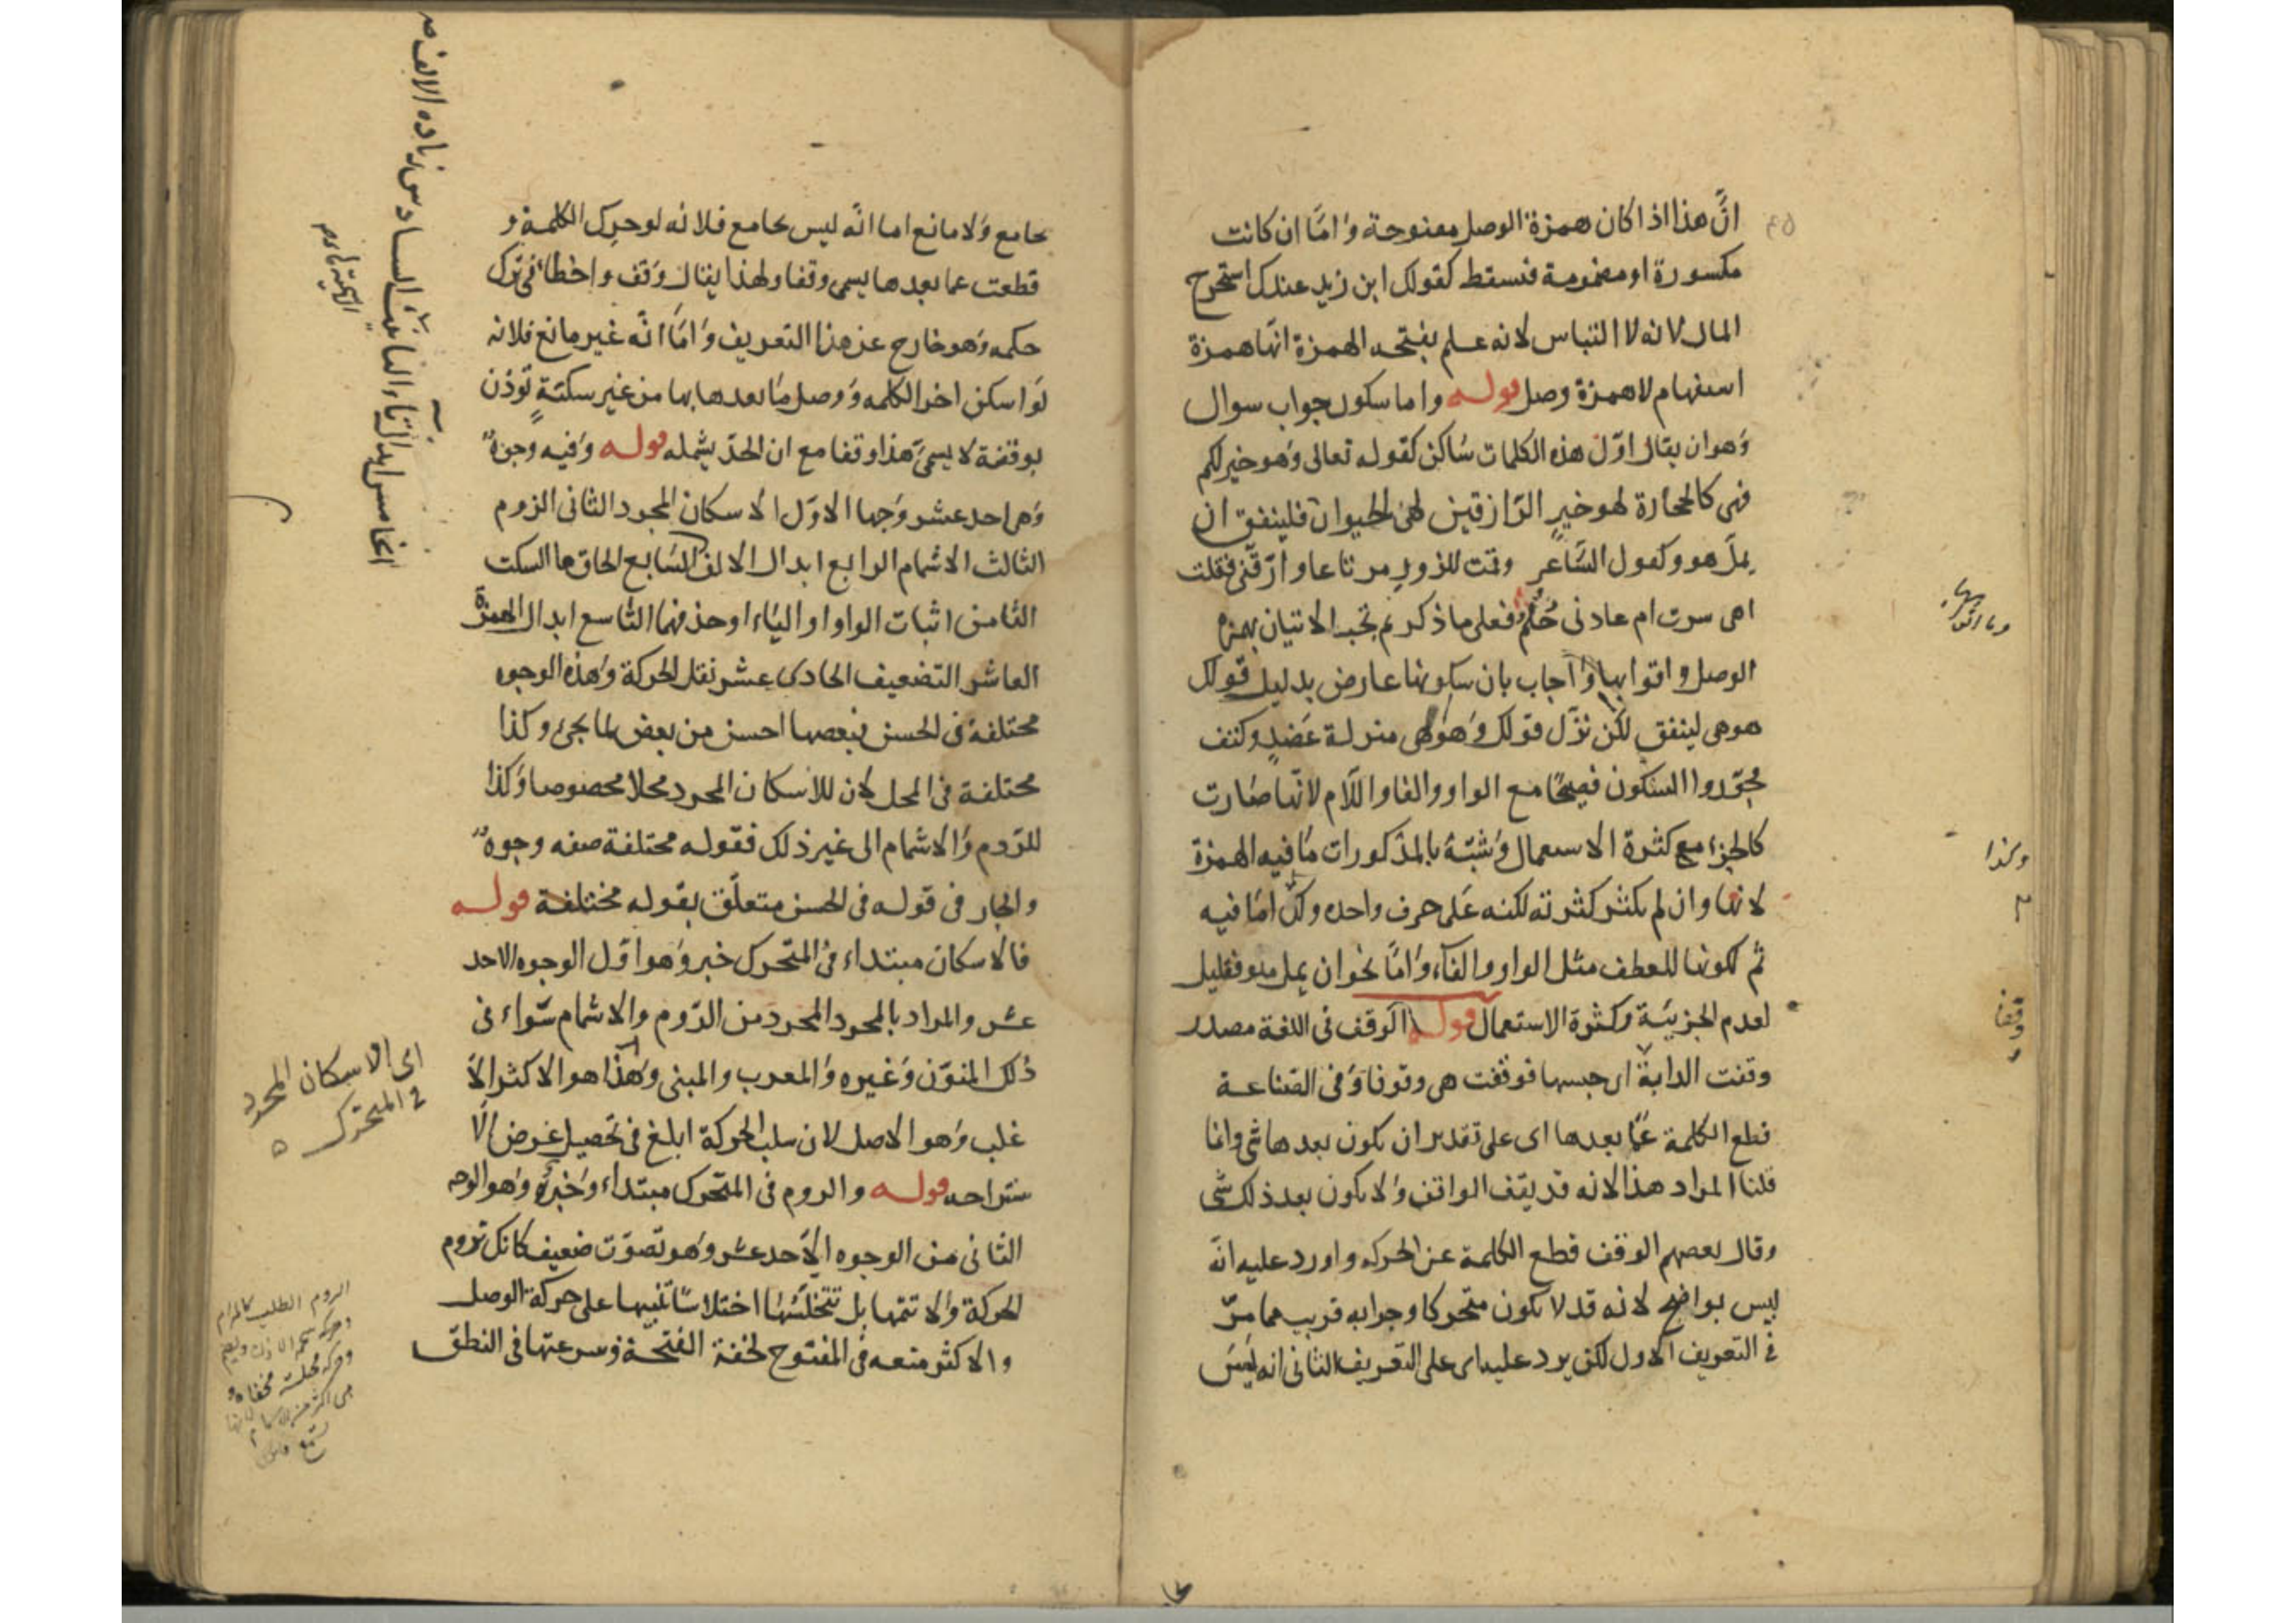 انّ هذا اذا كان همزة الوصل مفتوحة وامّا ان كانت
مكسورة او مضمومة فتسقط كقولك ابن زيد عندك استخرج
المال لانه لا التباس لانه علم بفتحه الهمزة انّها همزة
استفهام لا همزة وصل قوله واما سكون جواب سوال
وهو ان يقال اوّل هذه الكلمات ساكن كقوله تعالى وهو خير لكم
فهى كالحجارة لهو خير الرّازقين لهى الحيوان فلينفق ان
يملّ هو وكقول الشّاعر وقمت للزور مرتاعا وارّقنى فقلت
اهى سرت ام عادنى حُلُمُ فعلى ما ذكر تم تجب الاتيان بهمزة
الوصل واتوا بها واجاب بان سكونها عارض بدليل قولك
هو هى لينفق لكن نزّل قولك وهو وهى منزلة عضد وكتف
مجوّدوا السكون فصيحًا مع الواو والفا واللّام لانّها صارت
كالجزء مع كثرة الاستعمال وشبّه بالمذكورات ما فيه الهمزة
لانها وان لم يكثر كثرته لكنه على حرف واحد وكذا امّا فيه
ثم لكونها للعطف مثل الواو والفآء وامّا نحو ان يمل هو فقليل
لعدم الجزئيّة وكثرة الاستعمال قوله الوقف فى اللغة مصدر
وقفت الدابة اى حبسها فوقفت هى وقوفا وفى الصّناعة
قطع الكلمة عمّا بعدها اى على تقدير ان يكون بعدها شى وانما
قلنا المراد هذا لانه قد يقف الواقف ولا يكون بعد ذلك شى
وقال بعضهم الوقف قطع الكلمة عن الحركة واورد عليه انّه
ليس بواضح لانه قد لا يكون متحركا وجوابه قريب مما مرّ
فى التعريف الاول لكن يرد عليه اى على التعريف الثانى انه ليس
وكذا
وقفا
بجامع ولا مانع اما انّه ليس بجامع فلانه لو حرك الكلمة و
قطعت عما بعدها يسمى وقفا ولهذا يقال وقف واخطا فى ترك
حكمه وهو خارج عن هذا التعريف وامّا انّه غير مانع فلانه
لو اسكن اخر الكلمه ووصل ما بعدها بها من غير سكتة تؤذن
بوقفة لا يسمّى هذا وقفا مع ان الحدّ يشمله قوله وفيه وجوهٌ
وهى احد عشر وجها الاوّل الاسكان المجرد الثانى الروم
الثالث الاشمام الرابع ابدال الالف السّابع الحاق ها السكت
الثامن اثبات الواو او الياء او حذفهما التاسع ابدال الهمزة
العاشر التضعيف الحادى عشر نقل الحركة وهذه الوجوه
مختلفة فى الحسن فبعضها احسن من بعض لما يجئ وكذا
مختلفة فى المحل لان للاسكان المجرد محلا مخصوصا وكذا
للرّوم والاشمام الى غير ذلك فقوله مختلفة صفه وجوهٌ
والجار فى قوله فى الحسن متعلّق بقوله مختلفة قوله
فالاسكان مبتداء فى المتحرك خبر وهو اوّل الوجوه الاحد
عشر والمراد بالمجرد المجرد من الرّوم والاشمام سّواء فى
ذلك المنوّن وغيره والمعرب والمبنى وهذا هو الاكثر الا
غلب وهو الاصل لان سلب الحركة ابلغ فى تحصيل غرض الا
ستراحه قوله والروم فى المتحرك مبتداء وخبره وهو الوجه
الثانى من الوجوه الاحد عشر وهو تصوّت ضعيف كانك تروم
الحركة ولا تتمّها بل تختلسها اختلاسا تنبيها على حركة الوصل
والاكثر منعه فى المفتوح لخفة الفتحة وسرعتها فى النطق
الخامس ابدال تاء التانيث السادس زياده الالف
اى الاسكان المجرد
فى المتحرك
الروم الطلب كالمرام